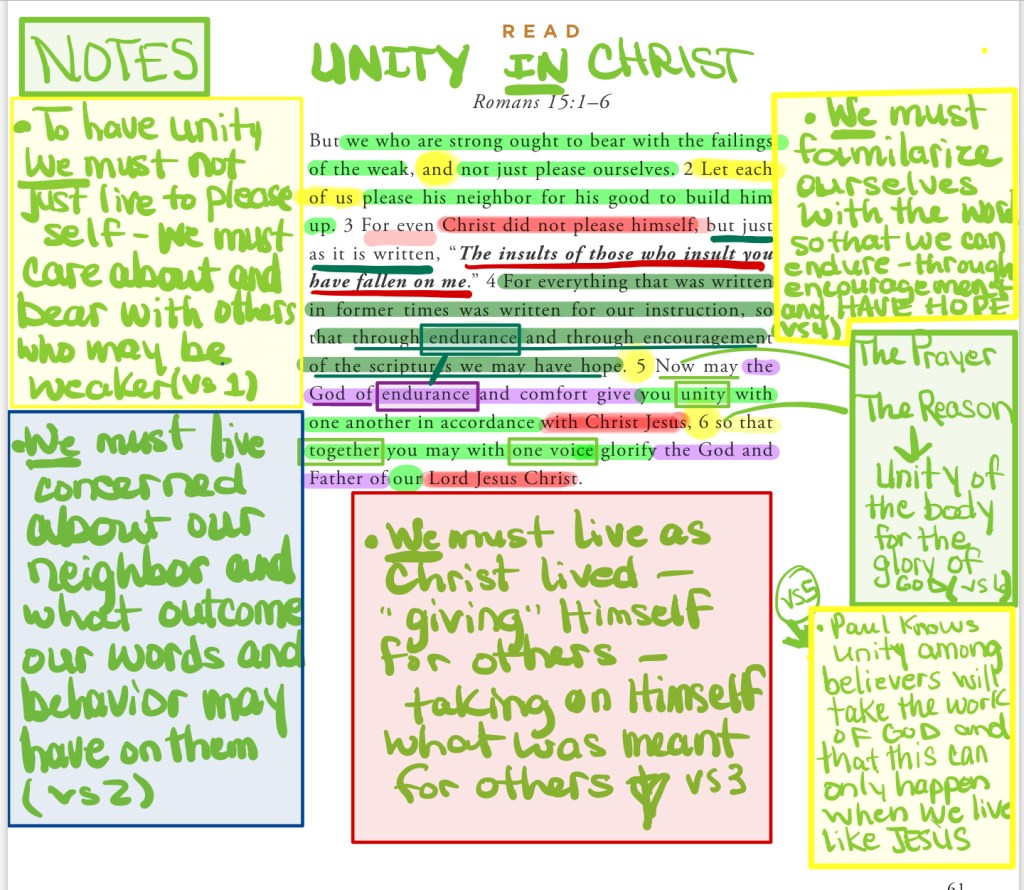 NOTES
READ
UNITY IN CHRIST
Romans 15:1–6
But we who are strong ought to bear with the failings
of the weak, and not just please ourselves. 2 Let each
of us please his neighbor for his good to build him
up. 3 For even Christ did not please himself, but just
as it is written, “The insults of those who insult you
have fallen on me.” 4 For everything that was written
in former times was written for our instruction, so
that through endurance and through encouragement
of the scriptures we may have hope. 5 Now may the
God of endurance and comfort give you unity with
one another in accordance with Christ Jesus, 6 so that
together you may with one voice glorify the God and
Father of our Lord Jesus Christ.
• To have unity
we must not
just live to please
self - we must
care about and
bear with others
who may be
weaker (vs 1)
• We must live
concerned
about our
neighbor and
what outcome
our words and
behavior may
have on them
(vs2)
• We must live as
Christ lived —
"giving" Himself
for others —
taking on Himself
what was meant
for others vs3
• We must
familiarize
ourselves
with the word
so that we can
endure - through
encouragement
and HAVE HOPE
(vs4)
The Prayer
The Reason
Unity of
the body
for the
glory of
GOD (vs 6)
vs5
• Paul Knows
unity among
believers will
take the work
OF GOD and
that this can
only happen
when we live
like JESUS